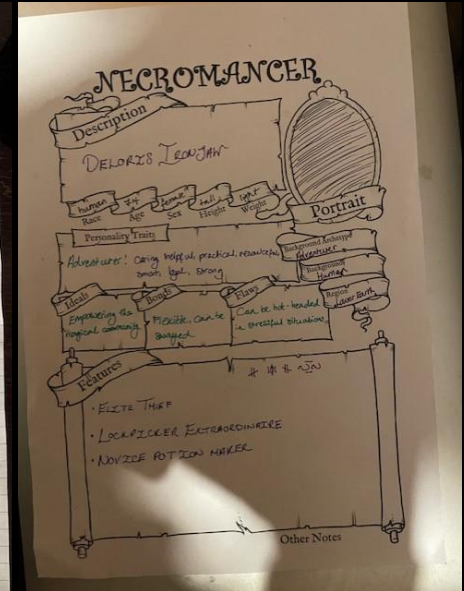 NECROMANCER
Description
DELORIS IRONJAW
human
Race
74
Age
female
Sex
tall
Height
light
Weight
Portrait
Personality Traits
Adventurer! Caring, helpful, practical, resourceful,
smart, loyal, strong
Background Archetype
Adventurer
Background
Human
Region
Lower Earth
Ideals
Empowering the
magical community
Bonds
Flexible, can be
swayed
Flaws
Can be hot-headed
in stressful situations
Features
• ELITE THIEF
• LOCKPICKER EXTRAORDINAIRE
• NOVICE POTION MAKER
Other Notes